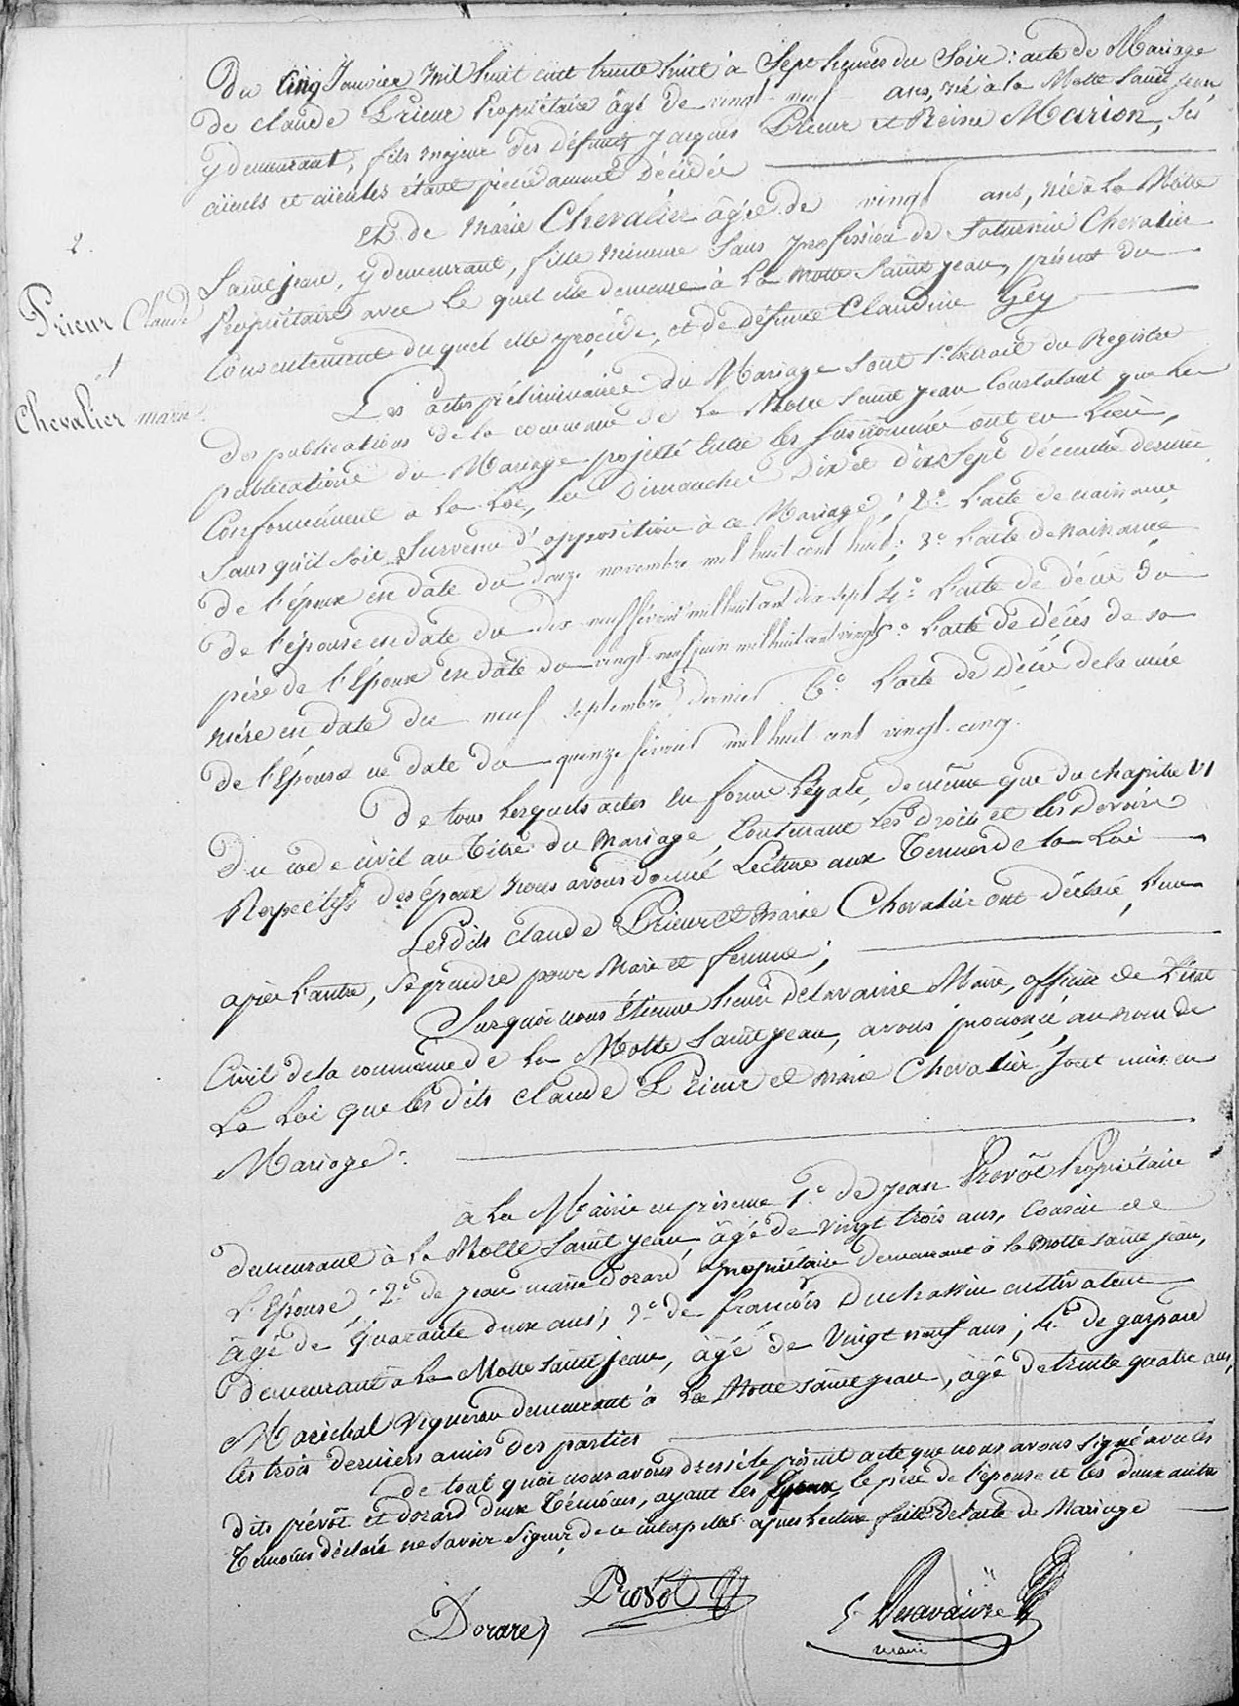 Du cinq Janvier mil huit cent trente huit à Sept heures du Soir : acte de Mariage
de claude Prieur Propriétaire âgé de vingt-neuf ans, né à la Motte Saint Jean
y demeurant, fils majeur des défunts Jacques Prieur et Reine Marion, ses
aïeuls et aïeules étant précédamment décédés
2.
Et de Marie Chevalier âgée de vingt ans, née à la Motte
Saint jean, y demeurant, fille mineure Sans profession de Saturnin Chevalier
Prieur Claude
Propriétaire avec le quel elle demeure à la Motte Saint jean, présent du
Consentement duquel elle procède, et de défunte Claudine Gey
et
Chevalier marie
Les actes préliminaires du Mariage Sont 1.º l'extrait du Registre
des publications de la commune de la Motte Saint jean Constatant que les
publications du Mariage projetté Entre les susnommés ont eu Lieu,
Conformément à la Loi, les Dimanches Dix et dix Sept décembre dernier
Sans qu'il soit Survenu d'opposition à ce Mariage ; 2.º L'acte de naissance
de l'époux en date du douze novembre mil huit cent huit ; 3.º L'acte de naissance
de l'épouse en date du dix neuf février mil huit cent dix sept 4.º L'acte de décès du
père de l'Époux en date du vingt neuf juin mil huit cent vingt 5.º L'acte de décès de sa
mère en date du neuf septembre dernier 6.º L'acte de Décès de la mère
de l'Épouse en date du quinze février mil huit cent vingt-cinq.
De tous lesquels actes En forme Légale, de même que du chapitre VI
Du code civil au Titre du Mariage, Contenant les droits et les Devoirs
Respectifs des époux nous avons donné Lecture aux Termes de la Loi
Les dits claude Prieur et Marie Chevalier ont déclaré, l'un
après l'autre, se prendre pour Mari et femme ;
Sur quoi nous Étienne henri Delavaivre Maire, officier de l'état
Civil de la commune de la Motte Saint jean, avons prononcé, au nom de
La Loi que les dits claude Prieur et Marie Chevalier Sont unis en
Mariage.
à La Mairie en présence 1.º de jean Prévôt Propriétaire
demeurant à la Motte Saint jean, âgé de vingt trois ans, Cousin de
L'Épouse, 2.º de jean marie Dorard propriétaire demeurant à la Motte saint jean,
âgé de Quarante deux ans ; 3.º de françois Duchassin cultivateur
demeurant à la Motte saint jean, âgé de Vingt neuf ans ; 4.º de gaspard
Maréchal vigneron demeurant à la Motte saint jean, âgé de trente quatre ans,
les trois derniers amis des parties
de tout quoi nous avons dressé le présent acte que nous avons signé avec les
dits prévôt et dorard deux Témoins, ayant les Époux, le père de l'épouse et les deux autres
Témoins déclaré ne savoir signer, de ce interpellés après Lecture faite De l'acte de Mariage
Dorard Provot h Delavaivre
maire